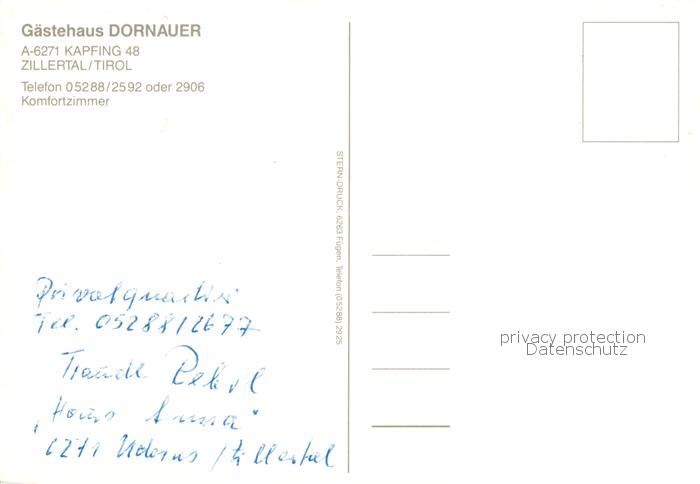 Gästehaus DORNAUER
A-6271 KAPFING 48
ZILLERTAL/TIROL
Telefon 05288/2592 oder 2906
Komfortzimmer
STERN-DRUCK, 6263 Fügen, Telefon (05288) 2925
Privatquartier
Tel. 05288/2677
Traudl
„Haus Anna"
6271 Uderns / Zillertal
privacy protection
Datenschutz